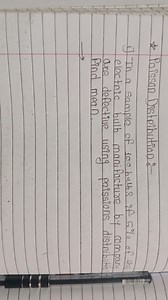 * Poisson Distribution :
1) In a sample of 100 bulbs if 5% of the
electric bulb manufacture by company
are defective using poissions distributi
find mean
→